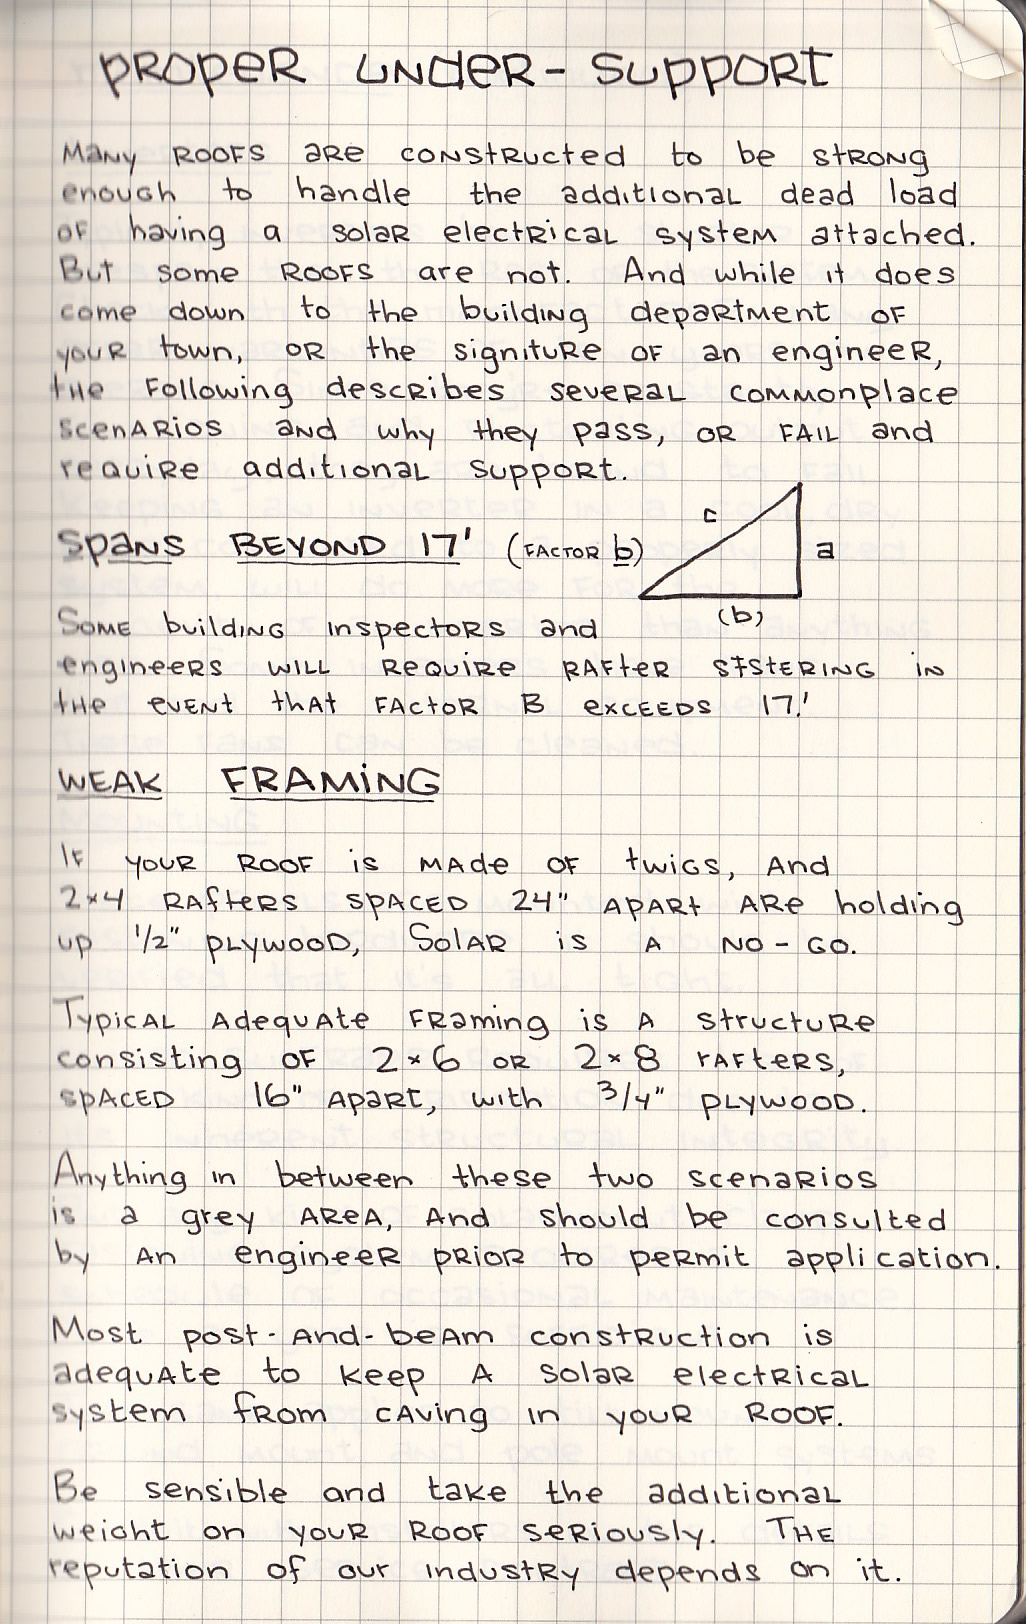 PROPER UNDER-SUPPORT
Many ROOFS are constructed to be strong
enough to handle the additional dead load
of having a solar electrical system attached.
But some ROOFS are not. And while it does
come down to the building department of
your town, or the signiture of an engineer,
the following describes several commonplace
scenarios and why they pass, or FAIL and
require additional support.
SPANS BEYOND 17' (FACTOR b)
c
a
(b)
Some building inspectors and
engineers WILL REQUIRE RAFTER SISTERING IN
the EVENT that FACTOR B EXCEEDS 17!'
WEAK FRAMING
If YOUR ROOF is made of twigs, And
2x4 RAFTERS SPACED 24" APART ARE holding
up 1/2" PLYWOOD, SOLAR is A NO-GO.
Typical Adequate Framing is A structure
consisting OF 2x6 OR 2x8 rafters,
SPACED 16" APART, with 3/4" PLYWOOD.
Anything in between these two scenarios
is a grey AREA, And should be consulted
by An engineer PRIOR to permit application.
Most post-And-beam construction is
adequate to keep A solar electrical
system from caving in your ROOF.
Be sensible and take the additional
weight on your ROOF seriously. THE
reputation of our industry depends on it.